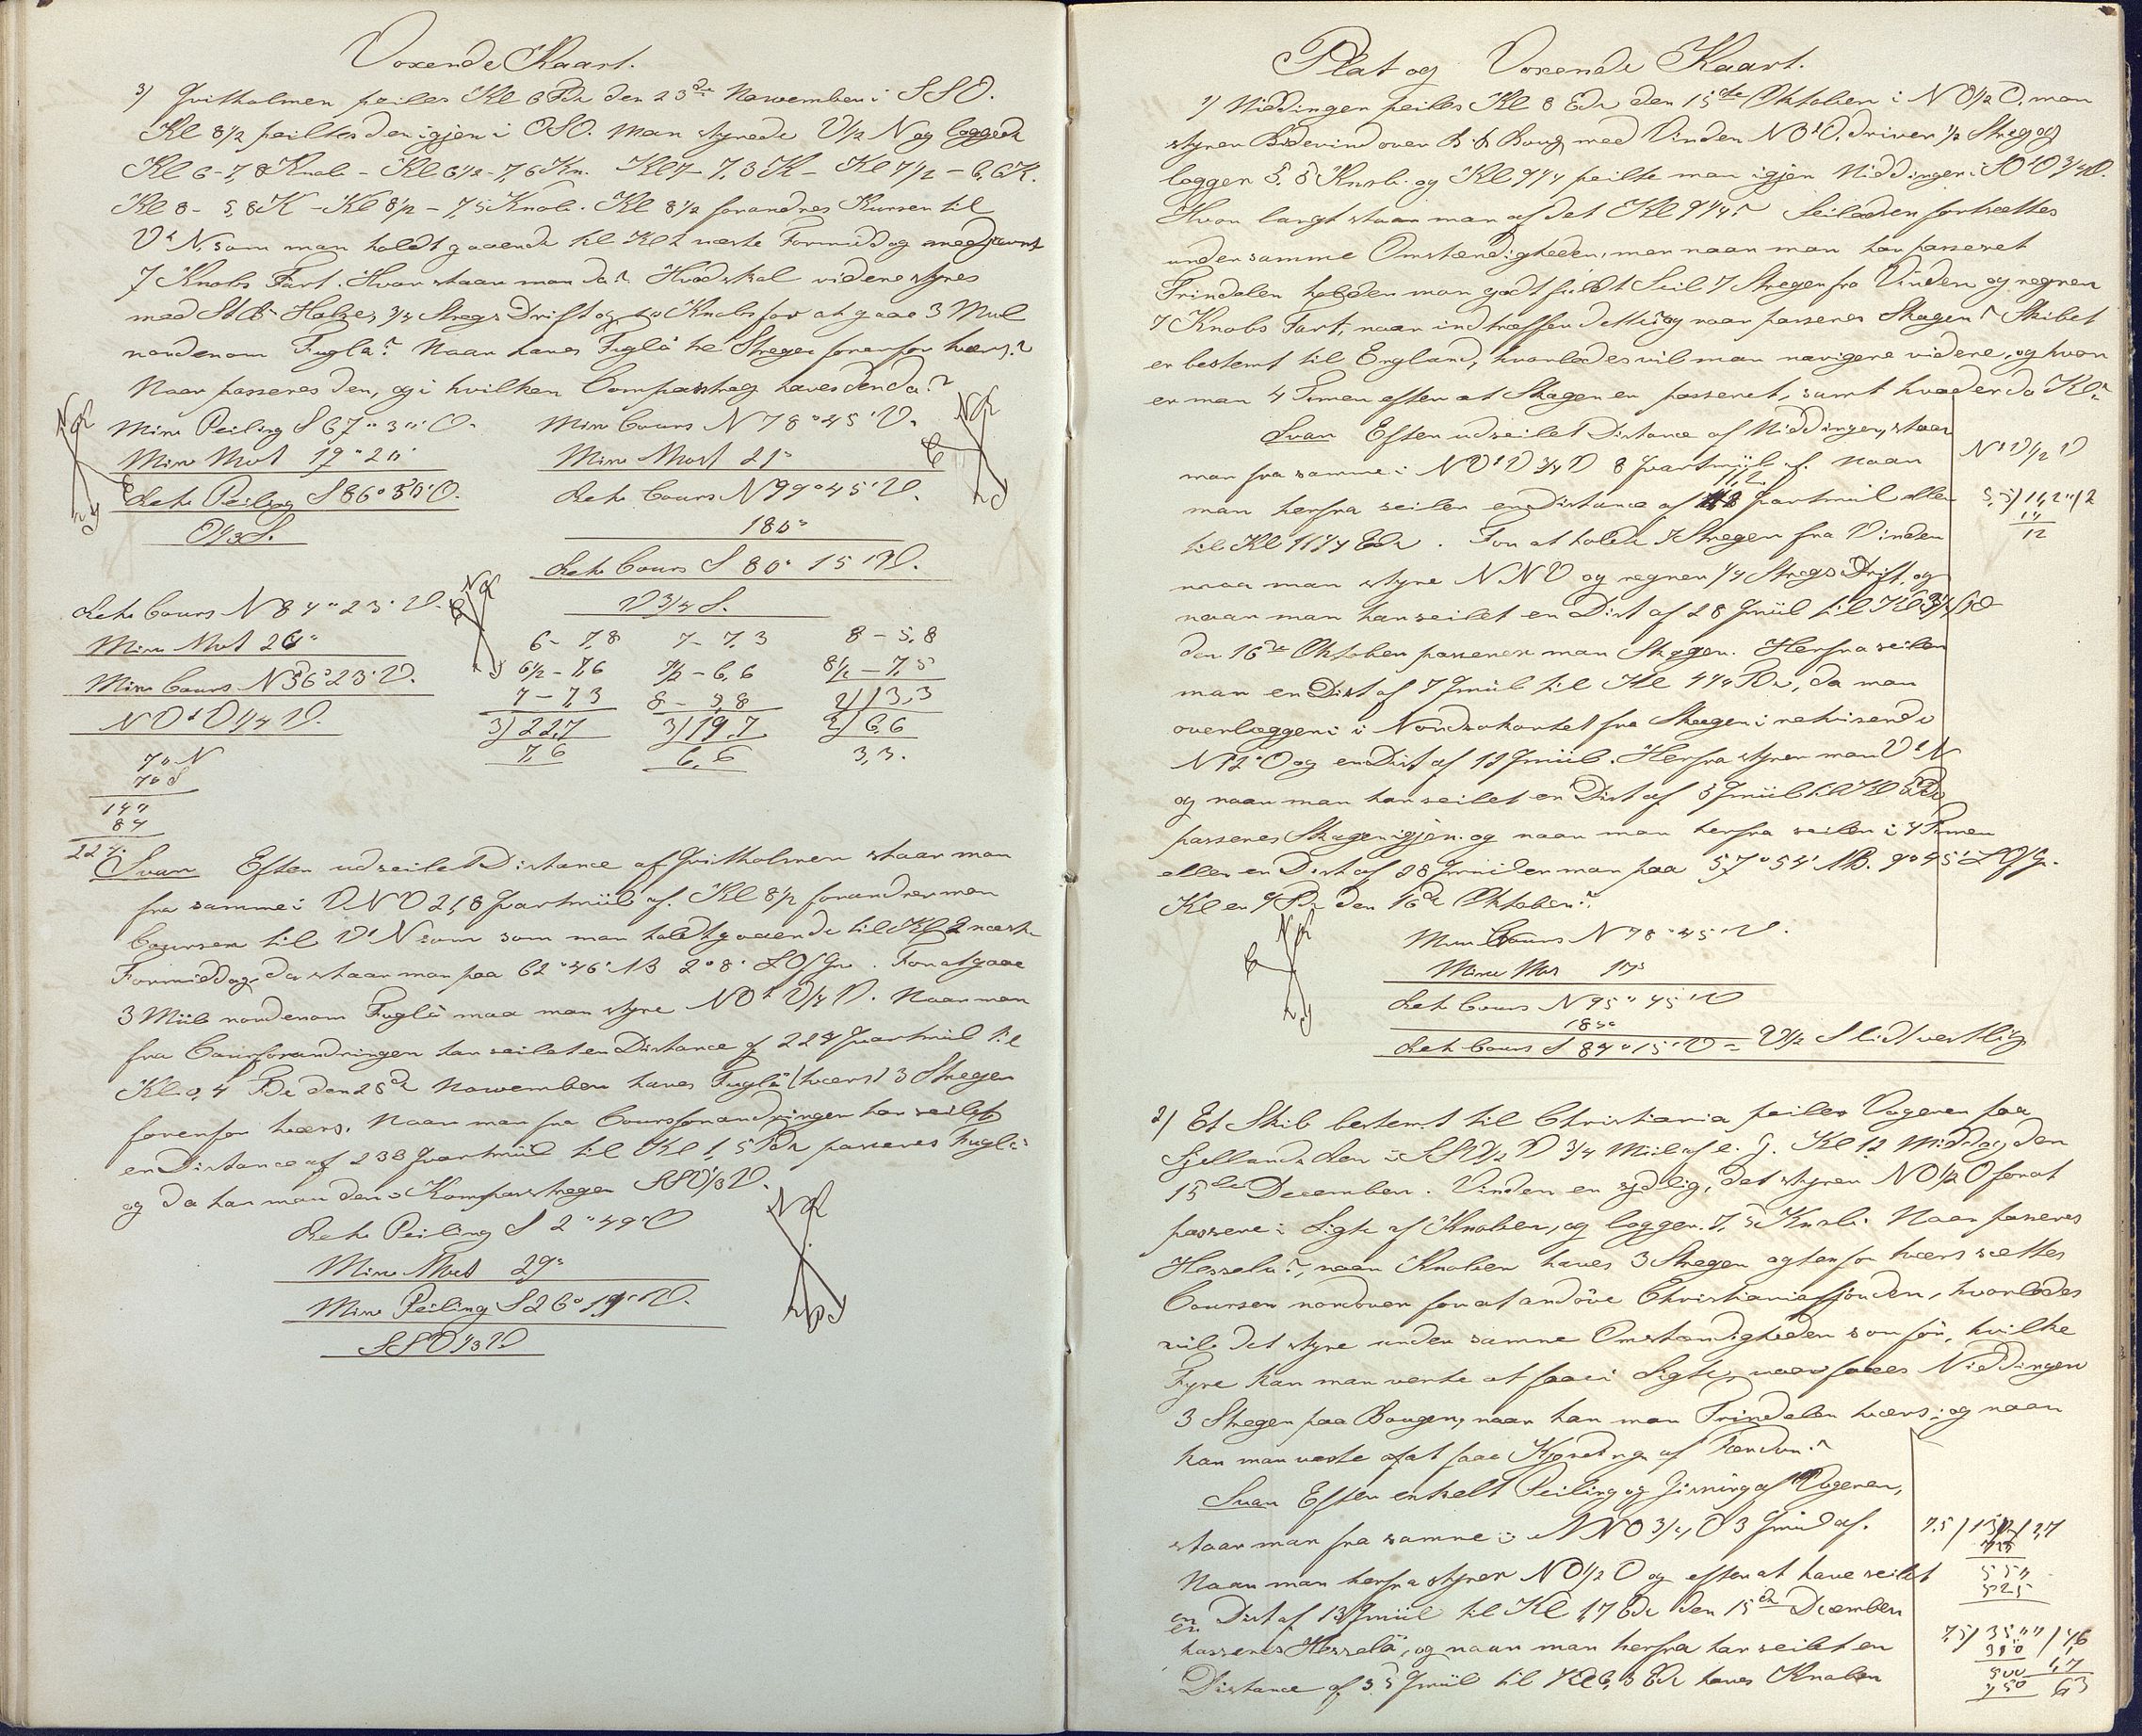 Voxende Kaart.
3) Hvitholmen peiles Kl 6 Fdr den 23de Nowember i SSO.
Kl 8 1/2 peiltes den igjen i OSO. Man styrede V 1/2 N og loggede
Kl 6 - 7,8 Knob - Kl 6 1/2 - 7,6 Kn. Kl 7 - 7,3 K - Kl 7 1/2 - 6,6 K.
Kl 8 - 5,8 K - Kl 8 1/2 - 7,5 Knob. Kl 8 1/2 forandres Kursen til
VtN, som man holdt gaaende til Kl 2 næste Formiddag med jevnt
7 Knobs Fart. Hvor staar man da? Hvad skal videre styres
med StB Halser, 3/4 Stregs Drift og 10 Knobs for at gaae 3 Mul
nordenom Fuglö? Naar haves Fuglö tre Streger forenfor tværs?
Naar passeres den, og i hvilken Compasstreg haves den da?
Misv Peiling S 67° 30' O.
Misv Mvt 19° 20'
Retv Peiling S 86° 50' O.
O 1/3 S.
Misv Cours N 78° 45' V.
Misv Mvt 21°
Retv Cours N 99° 45' V.
180°
Retv Cours S 80° 15' V.
V 3/4 S.
Retv Cours N 84° 23' V.
Misv Mvt 26°
Misv Cours N 56° 23' V.
NVtV 1/4 V.
6 - 7,8 7 - 7,3 8 - 5,8
6 1/2 - 7,6 7 1/2 - 6,6 8 1/2 - 7,5
7 - 7,3 8 - 5,8 2) 13,3
3) 22,7 3) 19,7 2) 6,6
7,6 6,6 3,3.
70 N
70 S
140
84
224
Svar Efter udseilet Distance af Hvitholmen staar man
fra samme i VNV 21,8 Kvartmiil af. Kl 8 1/2 forandrer man
Coursen til VtN som som man holdt gaaende til Kl 2 næste
Formiddag, da staar man paa 62° 46' NB 2° 8' L O f Gr. For at gaae
3 Miil nordenom Fuglö maa man styre NVtV 1/4 V. Naar man
fra Coursforandringen har seilet en Distance af 224 Kvartmiil til
Kl 0,4 Fdr den 25de Nowember haves Fuglö (tværs) 3 Streger
forenfor tværs. Naar man fra Coursforandringen har seilet
en Distance af 233 Kvartmiil til Kl 1,5 Fdr passeres Fuglö
og da har man den i Kompasstregen SSV 1/3 V.
Retv Peiling S 2° 49' O
Misv Mvt 29°
Misv Peiling S 26° 11' V.
SSV 1/3 V
Plat og Voxende Kaart.
1) Niddingen peiles Kl 8 Edr den 15de Oktober i N O 1/2 O. man
styrer Bidevind over B.B. Boug med Vinden NOtO. driver 1/2 Streg og
logger 5,5 Knob. og Kl 9 1/4 peilte man igjen Niddingen i SOtO 3/4 O.
Hvor langt staar man af det Kl 9 1/4? Seiladsen fortsættes
under samme Omstændigheder, men naar man har passeret
Trindelen holder man godt fuldt Seil 7 Streger fra Vinden og regner
7 Knobs Fart, naar indtræffer dette? og naar passeres Skagen? Skibet
er bestemt til England, hvorledes vil man navigere videre, og hvor
er man 4 Timer efter at Skagen er passeret, samt hvad er da Kl?
Svar Efter udseilet Distance af Niddingen, staar
man fra samme i NVtV 3/4 V 8 Kvartmiil af. Naar
11,2
man herfra seiler en Distance af Kvartmiil eller
til Kl 11 1/4 Edr. For at holde 7 Streger fra Vinden
maa man styre NNV og regner 1/4 Stregs Drift, og
naar man har seilet en Dist af 28 Qmiil til Kl 3 1/4 Fdr
den 16de Oktober passerer man Skagen. Herfra seiler
man en Dist af 7 Qmiil til Kl 4 1/4 Fdr, da man
overlægger i Nordsökortet fra Skagen i retvisende
N 12° O og en Dist af 13 Qmiil. Herfra styrer man VtN
og naar man har seilet en Dist af 5 Qmiil til Kl 5 Fdr
passeres Skagen igjen. og naar man herfra seiler i 4 Timer
eller en Dist af 28 Qmiil er man paa 57° 54' NB. 9° 45' L O f Gr.
Kl er 9 Fdr den 16de Oktober.
NtV 1/2 V
5,5) 11,2 / 2
11
12
Misv Cours N 78° 45' V.
Misv Mvt 17°
Retv Cours N 95° 45' V
180°
Retv Cours S 84° 15' V = V 1/2 S lidt vestlig
2) Et Skib bestemt til Christiania peiler Vageren paa
Sjellands Rev i SSV 1/2 V 3/4 Miil af e. G. Kl 12 Middag den
15de December. Vinden er sydlig, det styrer NO 1/2 O for at
passere i Sigte af Knoben, og logger 7,5 Knob. Naar passeres
Hesselø?, naar Knoben haves 3 Streger agtenfor tværs sættes
Coursen nordover for at andöve Christianiafjorden, hvorledes
vil det styre under samme Omstændigheder som för, hvilke
Fyre kan man vente at faae i Sigte, naar faaes Niddingen
3 Streger paa Bougen, naar har man Trindelen tværs, og naar
kan man vente at faae Kjending af Færder?
Svar Efter enkelt Peiling og Gisning af Vageren,
staar man fra samme i NNO 3/4 O 3 Qmiil af.
Naar man herfra styrer NO 1/2 O og efter at have seilet
en Dist af 13 Qmiil til Kl 1,7 Edr den 15de December
passeres Hesselö, og naar man herfra har seilet en
Distance af 35 Qmiil til Kl 6,3 Edr haves Knoben